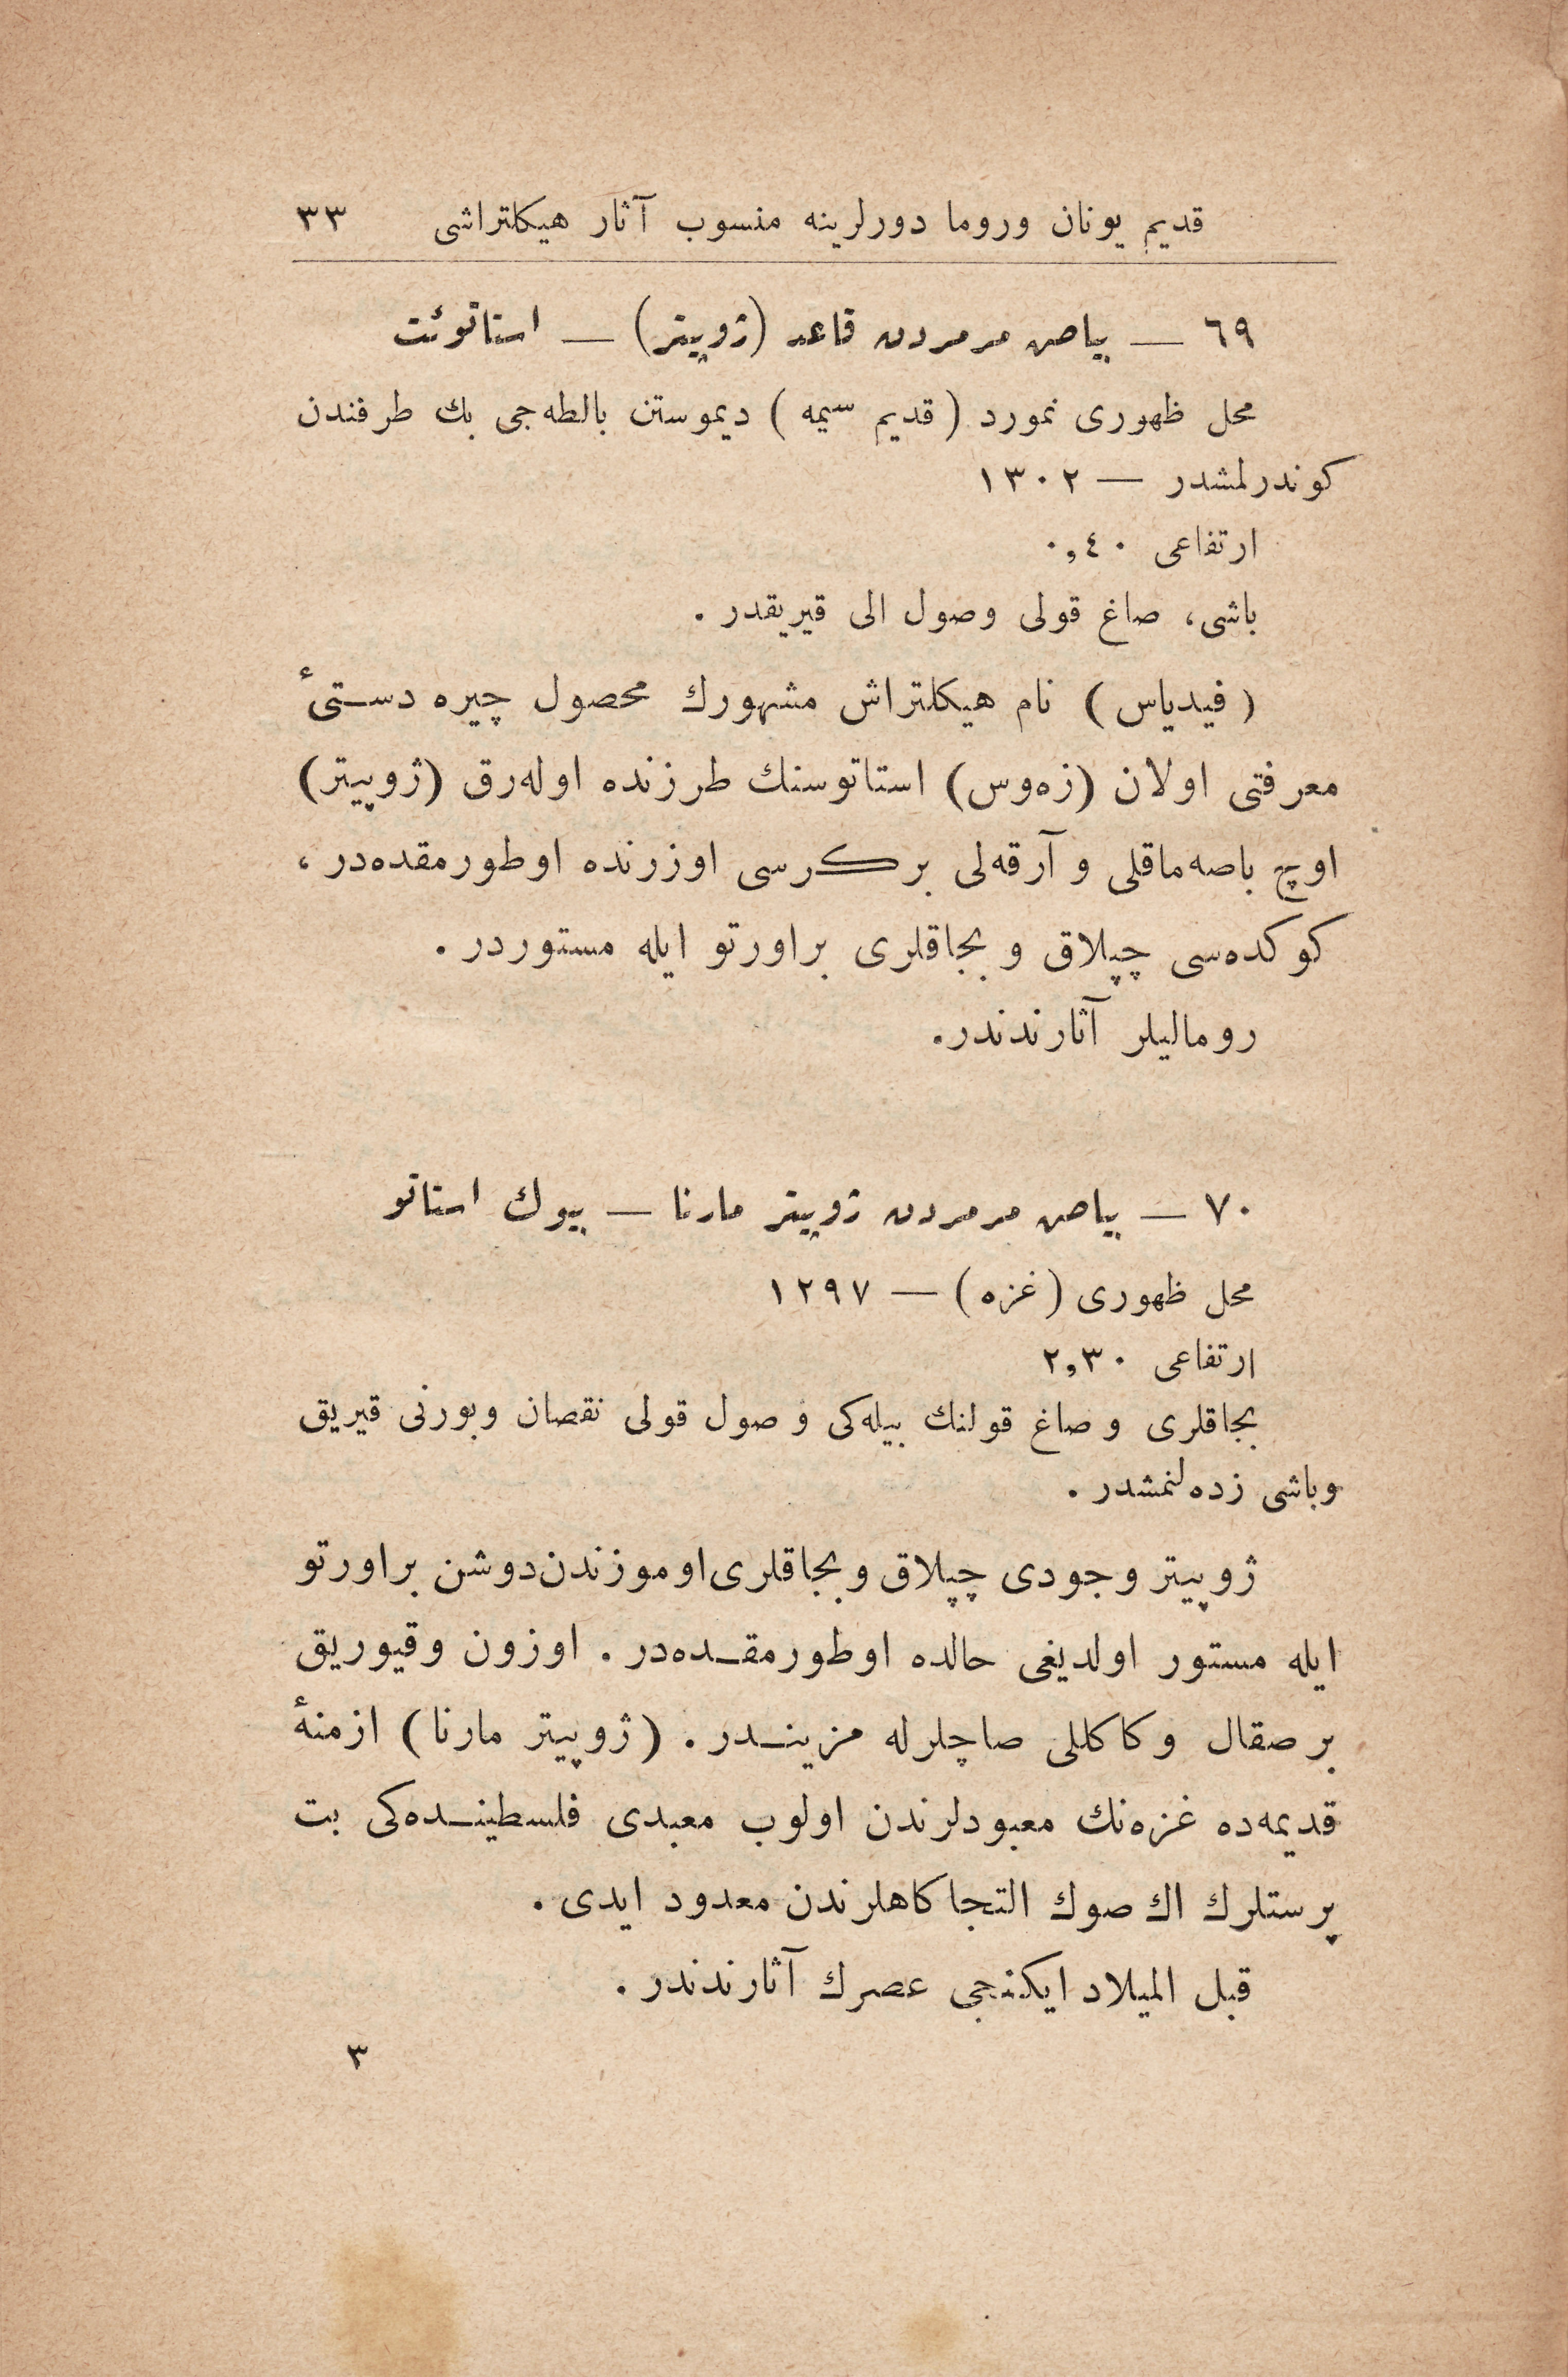 قديم يونان وروما دورلرينه منسوب آثار هيكلتراشى ٣٣
٦٩ — بياض مرمردن قاعد (ژوپيتر) — استاتوئت
محل ظهورى نمورد ( قديم سيمه ) ديموستن بالطه‌جى بك طرفندن
كوندرلمشدر — ١٣٠٢
ارتفاعى ٠,٤٠
باشى، صاغ قولى وصول الى قيريقدر .
( فيدياس ) نام هيكلتراش مشهورك محصول چيره دستىٔ
معرفتى اولان (زه‌وس) استاتوسنك طرزنده اوله‌رق (ژوپيتر)
اوچ باصه‌ماقلى و آرقه‌لى بر كرسى اوزرنده اوطورمقده‌در ،
كوكده‌سى چپلاق و بجاقلرى براورتو ايله مستوردر .
روماليلر آثارندندر.
٧٠ — بياض مرمردن ژوپيتر مارنا — بيوك استاتو
محل ظهورى (غزه) — ١٢٩٧
ارتفاعى ٢,٣٠
بجاقلرى و صاغ قولنك بيله‌كى و صول قولى نقصان وبورنى قيريق
وباشى زده‌لنمشدر .
ژوپيتر وجودى چپلاق وبجاقلرى اوموزندن دوشن براورتو
ايله مستور اولديغى حالده اوطورمقده‌در . اوزون وقيوريق
بر صقال وكاكللى صاچلرله مزيندر . (ژوپيتر مارنا) ازمنهٔ
قديمه‌ده غزه‌نك معبودلرندن اولوب معبدى فلسطينده‌كى بت
پرستلرك اك صوك التجا كاهلرندن معدود ايدى .
قبل الميلاد ايكنجى عصرك آثارندندر .
٣